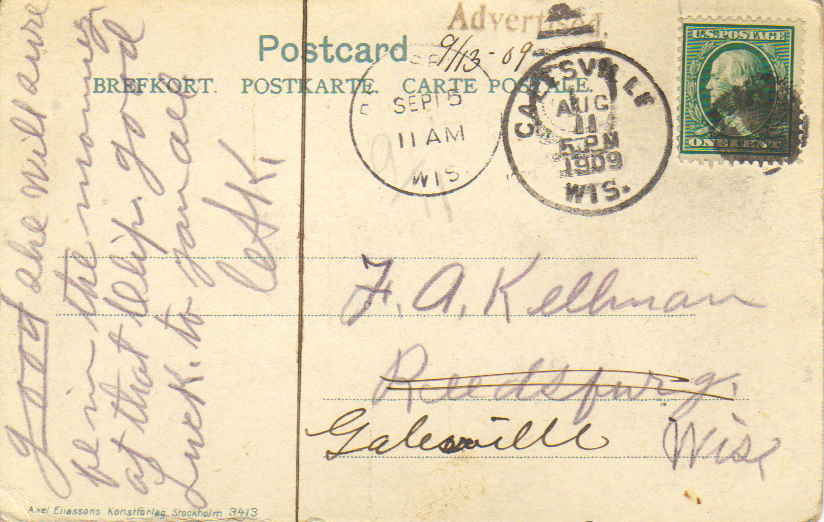 Advertised.
Postcard
9/13-09
BREFKORT. POSTKARTE. CARTE POSTALE.
SEP 15
11 AM
WIS.
GALESVILLE
AUG
11
5 P.M
1909
WIS.
U.S. POSTAGE
ONE CENT
good she will
be in the morning
at that good
Luck. to you all
F. A. Kellman
Reedsburg.
Galesville Wise
Axel Eliassons Konstförlag, Stockholm 3413